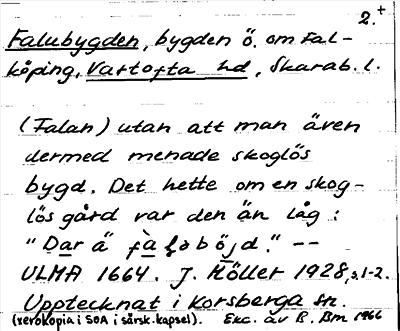 2.+
Falubygden, bygden ö. om Fal-
köping, Vartofta hd, Skarab. l.
(Falan) utan att man även
dermed menade skoglös
bygd. Det hette om en skog-
lös gård var den än låg:
"Dar ä fàɫəböjd." --
ULMA 1664. J. Möller 1928, s.1-2.
Upptecknat i Korsberga sn.
(xerokopia i SOA i särsk. kapsel). Exc. av B. Bm 1966